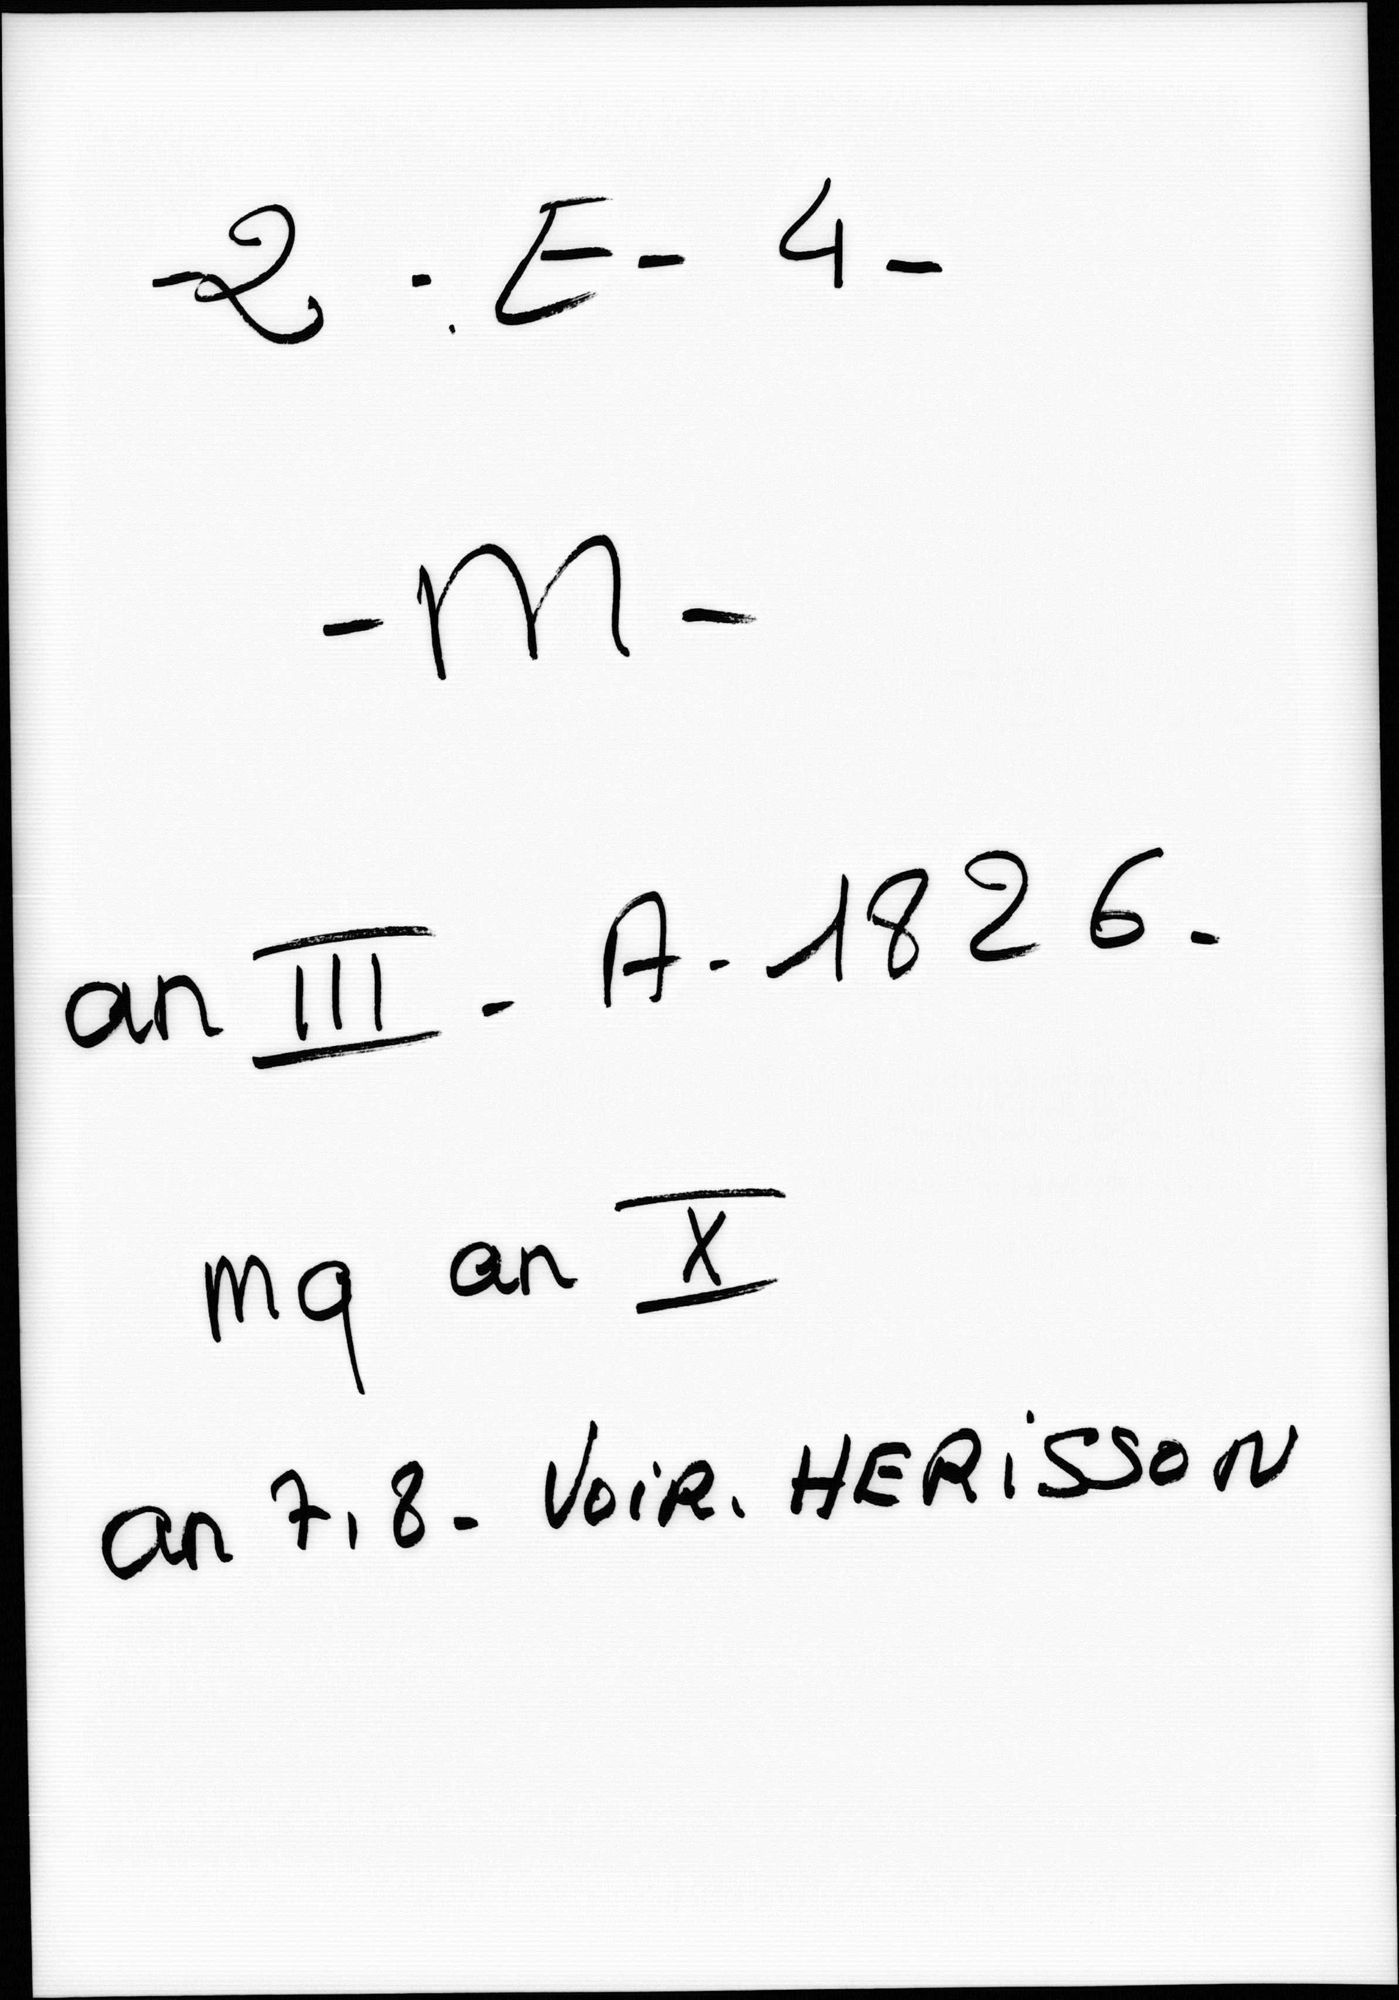 -2 - E - 4 -
- M -
an III - A - 1826 -
mq an X
an 7, 8 - VOIR. HERISSON